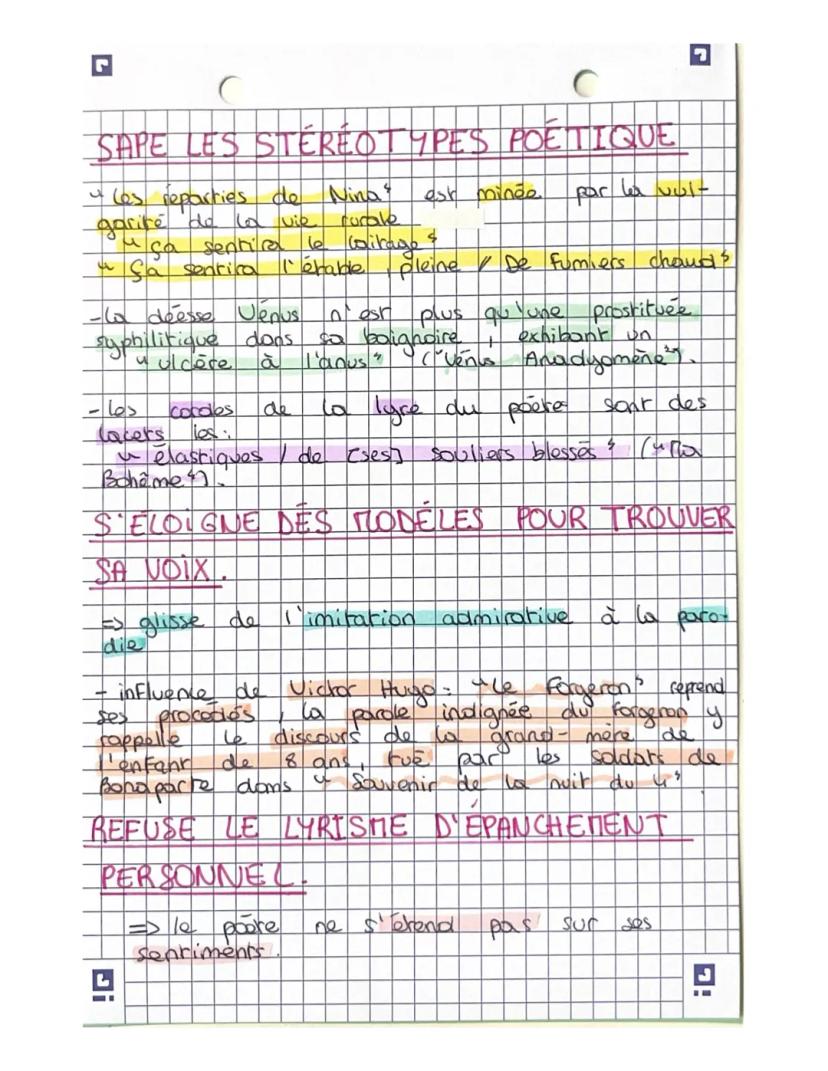 SAPE LES STÉRÉOTYPES POÉTIQUE
"les reparties de Nina" est minée par la vul-
garité de la vie rurale
"ça sentira le laitage"
"Ça sentira l'étable, pleine // De fumiers chauds"
-la déesse Vénus n'est plus qu'une prostituée
syphilitique dans sa baignoire, exhibant un
"ulcère à l'anus" ("Vénus Anadyomène").
-les cordes de la lyre du poète sont des
lacets les:
"élastiques / de [ses] souliers blessés" ("Ma
Bohème").
S'ÉLOIGNE DES MODÈLES POUR TROUVER
SA VOIX.
=> glisse de l'imitation admirative à la paro-
die
- influence de Victor Hugo: "Le Forgeron" reprend
ses procédés, la parole indignée du forgeron y
rappelle le discours de la grand-mère de
l'enfant de 8 ans, tué par les soldats de
Bonaparte dans "Souvenir de la nuit du 4"
REFUSE LE LYRISME D'ÉPANCHEMENT
PERSONNEL.
=> le poète ne s'étend pas sur ses
sentiments.